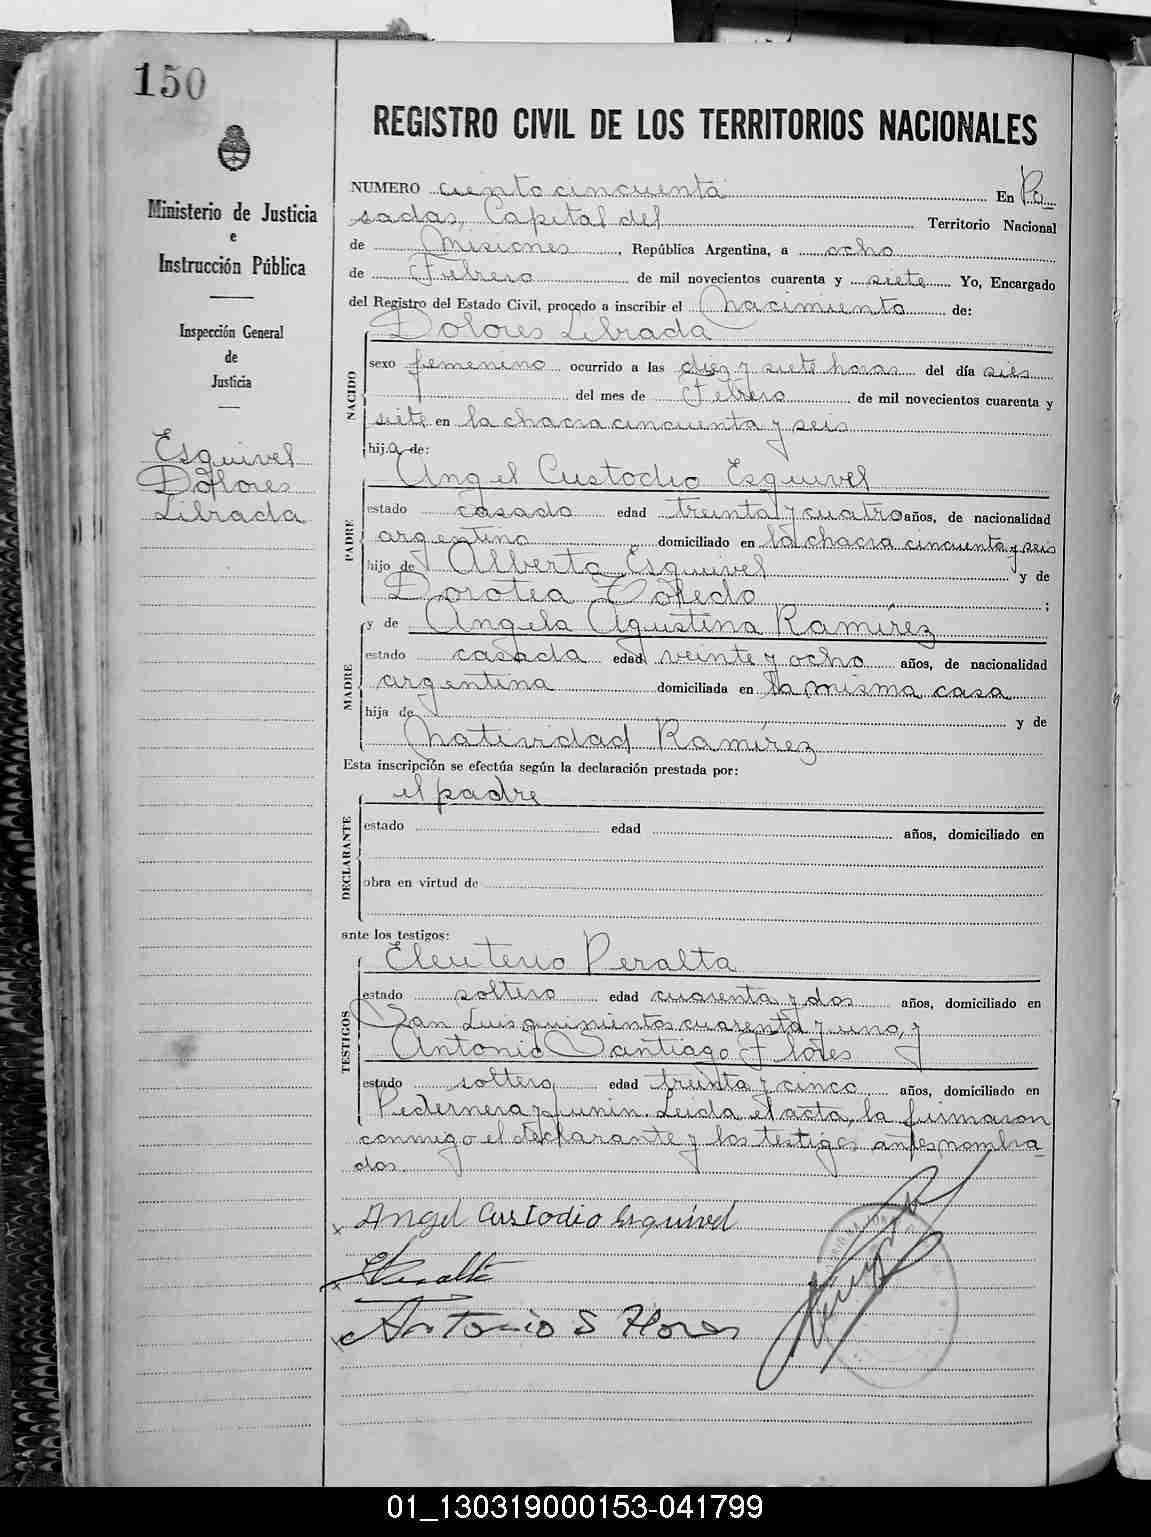 150
Ministerio de Justicia
e
Instrucción Pública
Inspección General
de
Justicia
Esquivel
Dolores
Librada
REGISTRO CIVIL DE LOS TERRITORIOS NACIONALES
NUMERO ciento cincuenta En Po
sadas, Capital del Territorio Nacional
de Misiones, República Argentina, a ocho
de Febrero de mil novecientos cuarenta y siete Yo, Encargado
del Registro del Estado Civil, procedo a inscribir el Nacimiento de:
Dolores Librada
NACIDO
sexo femenino ocurrido a las diez y siete horas del día seis
del mes de Febrero de mil novecientos cuarenta y
siete en la chacra cincuenta y seis
hija de:
Angel Custodio Esquivel
PADRE
estado casado edad treinta y cuatro años, de nacionalidad
argentino domiciliado en la chacra cincuenta y seis
hijo de Alberto Esquivel y de
Dorotea Toledo;
y de Angela Agustina Ramírez
MADRE
estado casada edad veinte y ocho años, de nacionalidad
argentina domiciliada en la misma casa
hija de y de
Natividad Ramírez
Esta inscripción se efectúa según la declaración prestada por:
el padre
DECLARANTE
estado edad años, domiciliado en
obra en virtud de
ante los testigos:
Eleuterio Peralta
TESTIGOS
estado soltero edad cuarenta y dos años, domiciliado en
San Luis quinientos cuarenta y uno, y
Antonio Santiago Flores
estado soltero edad treinta y cinco años, domiciliado en
Pedernera y Junin. Leida el acta, la firmaron
conmigo el declarante y los testigos antes nombra
dos
x Angel Custodio Esquivel
x EPeralta
x Antonio S Flores
01_130319000153-041799